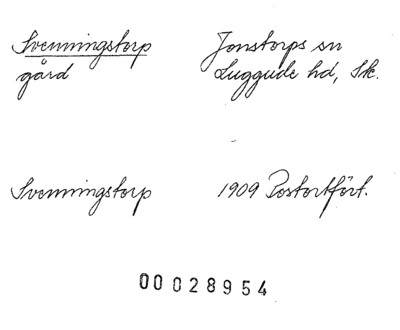 Svenningstorp Jonstorps sn
gård Luggude hd, Sk.
Svenningstorp 1909 Postortfört.
00028954